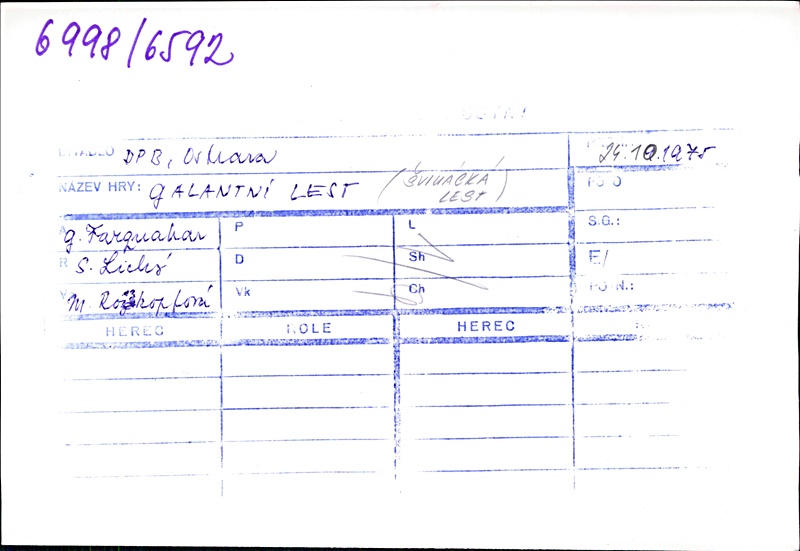 6998/6592
DIVADLO DPB, Ostrava 24.10.1975
NÁZEV HRY: GALANTNÍ LEST (ŠVIHÁCKÁ LEST)
G. Farquahar P L S.G.:
R S. Lichý D Sh E/
M. Rozkopfová Vk Ch
HEREC ROLE HEREC